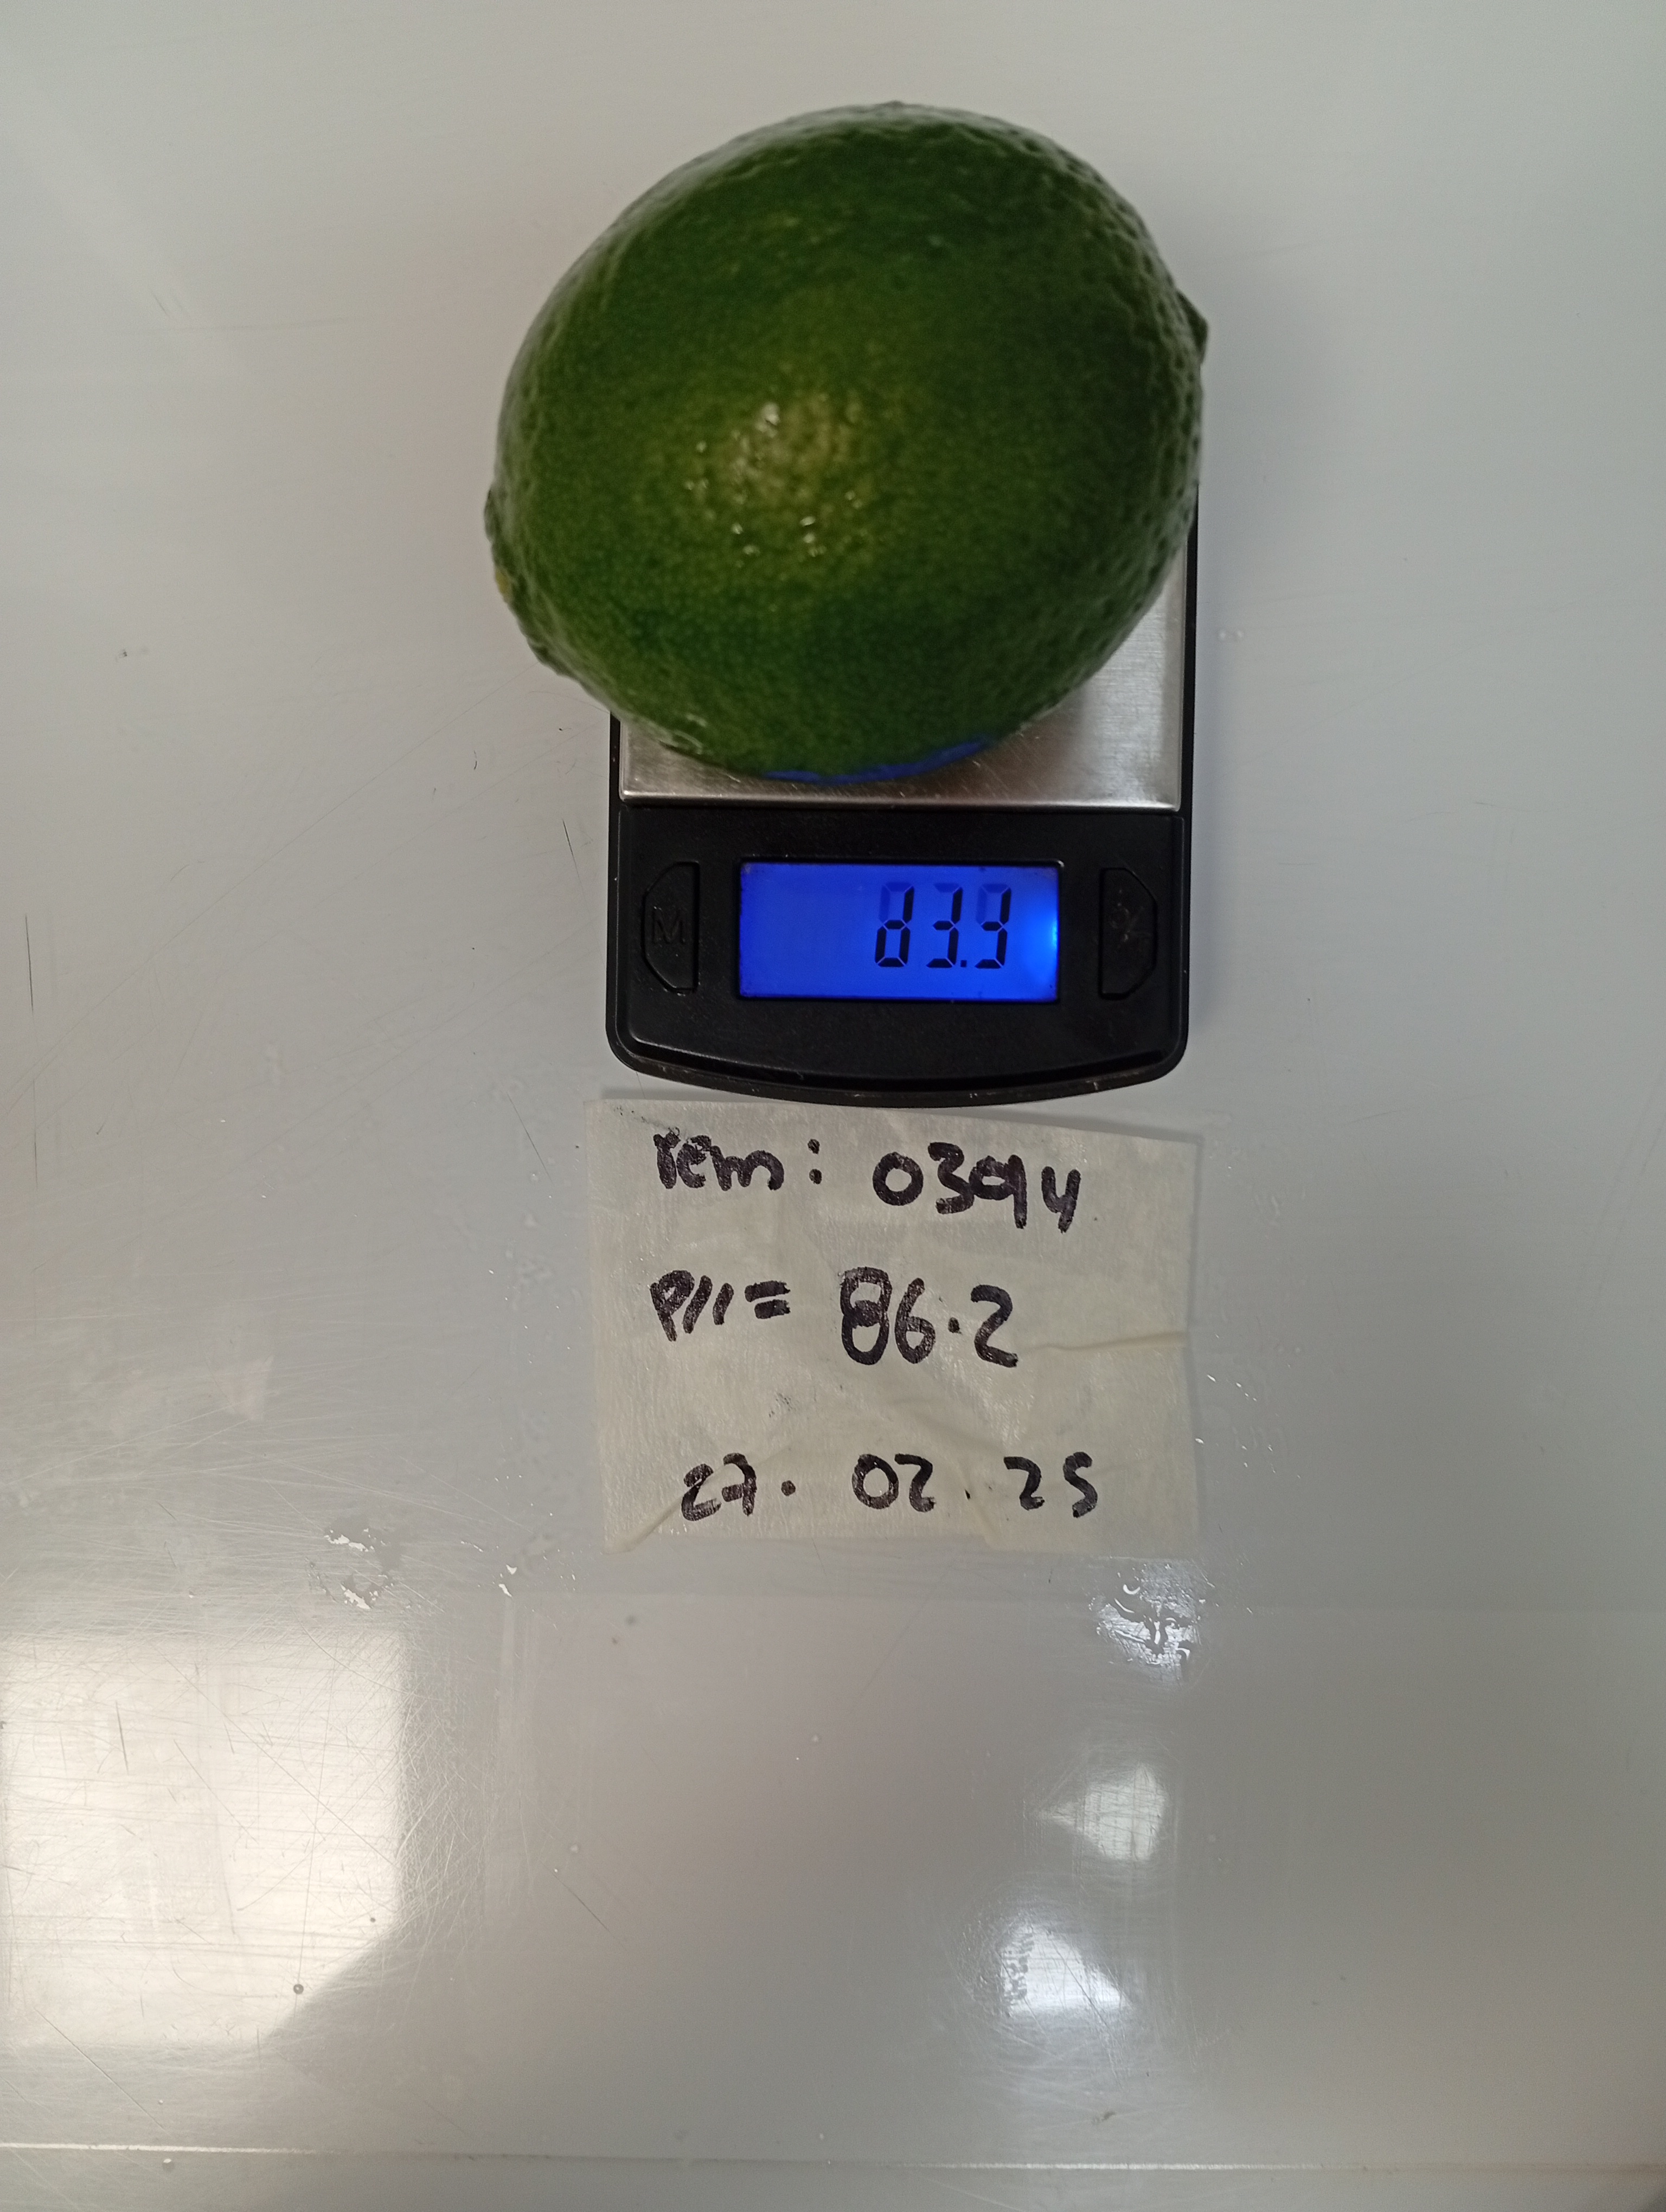 83.9
M
rem: 0394
P11= 86.2
27. 02. 25